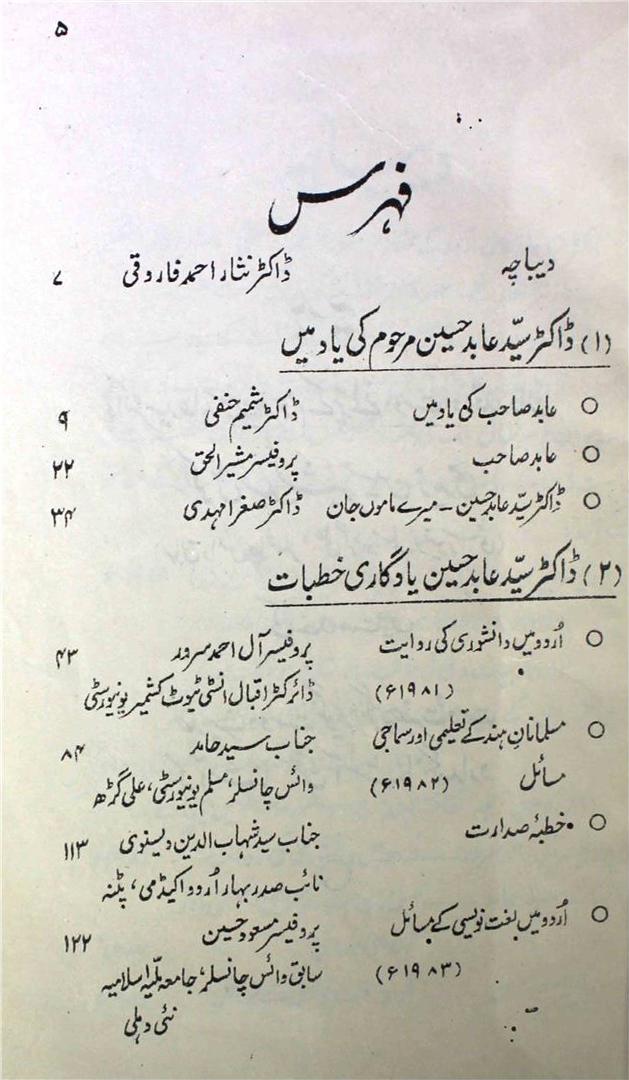 ۵
فہرس
دیباچہ ڈاکٹر نثار احمد فاروقی ۷
(۱) ڈاکٹر سیّد عابد حسین مرحوم کی یاد میں
○ عابد صاحب کی یاد میں ڈاکٹر شمیم حنفی ۹
○ عابد صاحب پروفیسر مشیر الحق ۲۲
○ ڈاکٹر سیّد عابد حسین ۔ میرے ماموں جان ڈاکٹر صغرا مہدی ۳۴
(۲) ڈاکٹر سیّد عابد حسین یادگاری خطبات
○ اُردو میں دانشوری کی روایت پروفیسر آل احمد سرور ۴۳
(۱۹۸۱ء) ڈائرکٹر اقبال انسٹی ٹیوٹ کشمیر یونیورسٹی
○ مسلمانانِ ہند کے تعلیمی اور سماجی جناب سید حامد ۸۴
مسائل (۱۹۸۲ء) وائس چانسلر، مسلم یونیورسٹی، علی گڑھ
○ خطبۂ صدارت جناب سید شہاب الدین دیسنوی ۱۱۳
نائب صدر بہار اُردو اکیڈمی، پٹنہ
○ اُردو میں لغت نویسی کے مسائل پروفیسر مسعود حسین ۱۲۲
(۱۹۸۳ء) سابق وائس چانسلر، جامعہ ملّیہ اسلامیہ
نئی دہلی